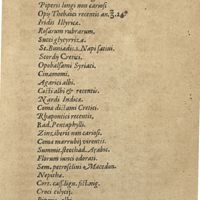 Piperis longi non cariosi
Opij Thebaici recentis an. ℥. 24.
Iridis Illyricæ.
Rosarum rubrarum.
Succi glycyrrizæ.
Se. Buniadis. s. Napi sativi.
Scordij Cretici.
Opobalsami Syriaci.
Cinamomi.
Agarici albi.
Costi albi & recentis.
Nardi Indica.
Coma dictami Cretici.
Rhapontici recentis,
Rad. Pentaphylli.
Zinziberis non cariosi.
Coma marrubij virentis.
Florum iunci odorati.
Sem. petroselini e Macedon.
Nepitha.
Croci cilycij.